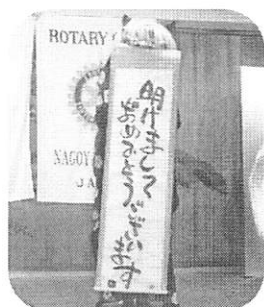 ROTARY
NAGOY
JA
明けまして
おめでとうございます。